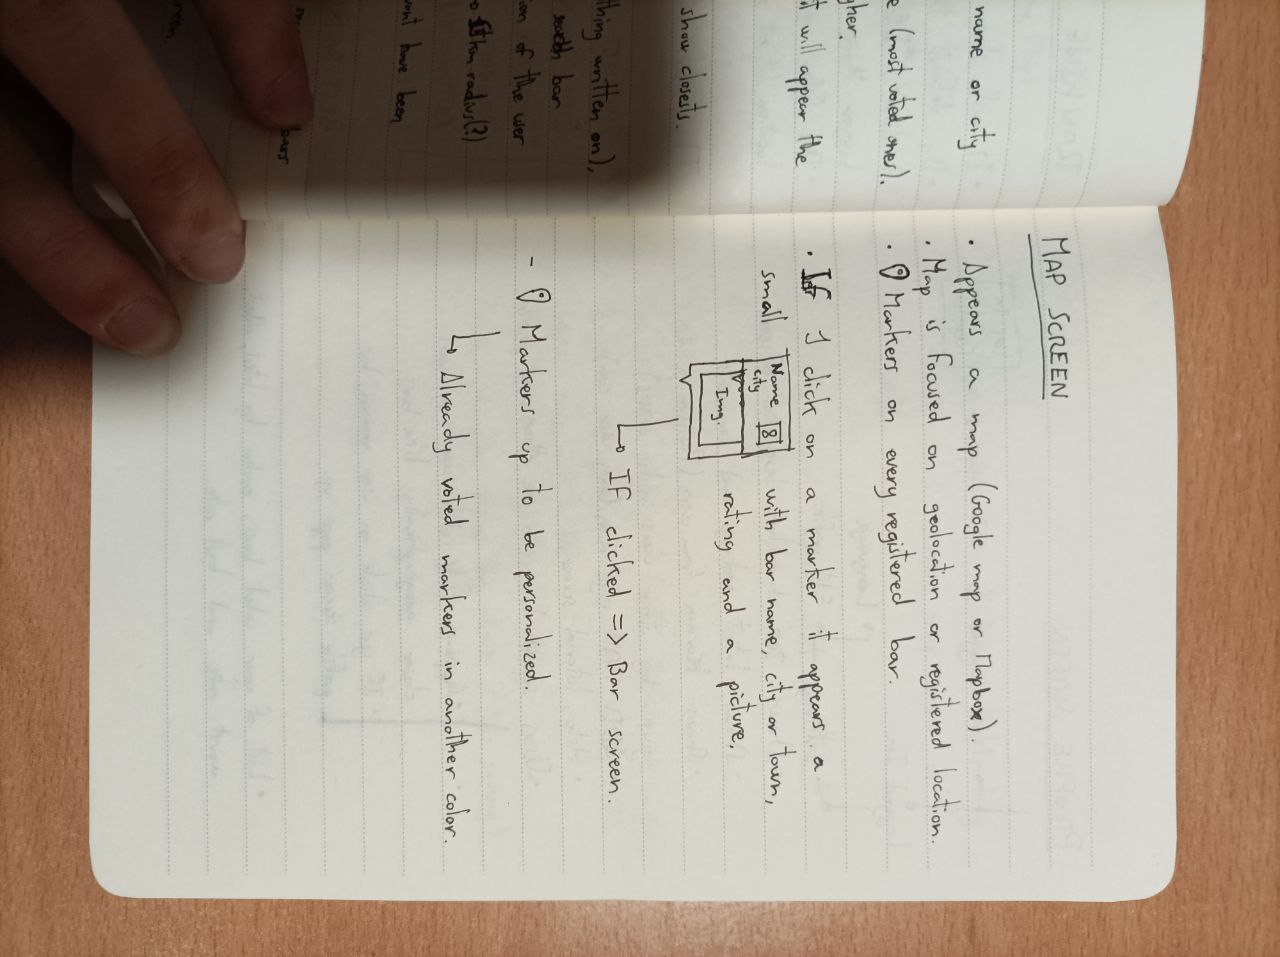 name or city
e (most voted ones).
gher.
it will appear the
show closests.
thing written on),
search bar
ion of the user
km radius(?)
vont have been
bars
MAP SCREEN
· Appears a map (Google map or Mapbox).
· Map is focused on geolocation or registered location.
· Markers on every registered bar.
· If I click on a marker it appears a
small
Name 8
city
Img.
with bar name, city or town,
rating and a picture.
↳ IF clicked => Bar screen.
- Markers up to be personalized.
↳ Already voted markers in another color.